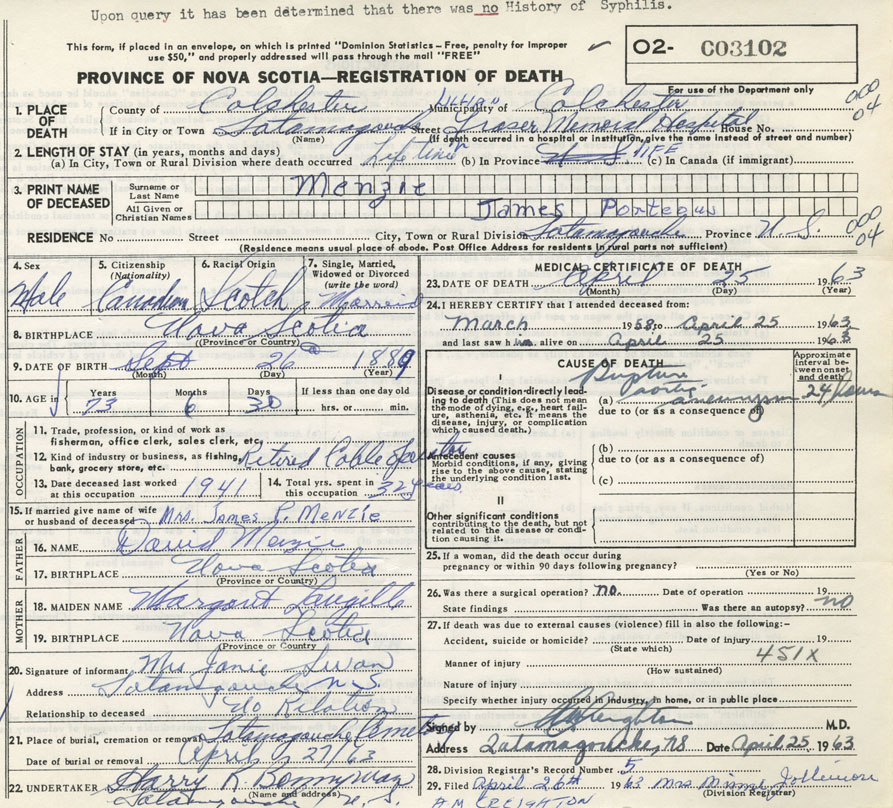 Upon query it has been determined that there was no History of Syphilis.
This form, if placed in an envelope, on which is printed "Dominion Statistics – Free, penalty for Improper
use $50," and properly addressed will pass through the mail "FREE"
O2- C03102
PROVINCE OF NOVA SCOTIA—REGISTRATION OF DEATH
For use of the Department only
1. PLACE OF DEATH
County of Colchester Municipality of Colchester
If in City or Town Tatamagouche Street Fraser Memorial Hospital House No.
(Name) (If death occurred in a hospital or institution, give the name instead of street and number)
000
04
2. LENGTH OF STAY (in years, months and days)
(a) In City, Town or Rural Division where death occurred Life time (b) In Province LIFE (c) In Canada (if immigrant)
3. PRINT NAME OF DECEASED
Surname or Last Name Menzie
All Given or Christian Names James Porteous
RESIDENCE No. Street City, Town or Rural Division Tatamagouche Province N.S.
000
04
(Residence means usual place of abode. Post Office Address for residents in rural parts not sufficient)
4. Sex
Male
5. Citizenship
(Nationality)
Canadian
6. Racial Origin
Scotch
7. Single, Married,
Widowed or Divorced
(write the word)
Married
8. BIRTHPLACE Nova Scotia
(Province or Country)
9. DATE OF BIRTH Sept 26 1889
(Month) (Day) (Year)
10. AGE in
Years Months Days If less than one day old
73 6 30 hrs. or min.
OCCUPATION
11. Trade, profession, or kind of work as
fisherman, office clerk, sales clerk, etc.
12. Kind of industry or business, as fishing,
bank, grocery store, etc. Retired Cable Operator
13. Date deceased last worked
at this occupation 1941
14. Total yrs. spent in
this occupation 32 years
15. If married give name of wife
or husband of deceased Mrs. James P. Menzie
FATHER
16. NAME David Menzie
17. BIRTHPLACE Nova Scotia
(Province or Country)
MOTHER
18. MAIDEN NAME Margaret
19. BIRTHPLACE Nova Scotia
Province or Country
20. Signature of informant Mrs Janie Swan
Address Tatamagouche N.S.
Relationship to deceased No Relation
21. Place of burial, cremation or removal Tatamagouche Cemetery
Date of burial or removal April 27/63
22. UNDERTAKER Harry K Bonnyman
(Name and address)
Tatamagouche N.S.
MEDICAL CERTIFICATE OF DEATH
23. DATE OF DEATH April 25 1963
(Month) (Day) (Year)
24. I HEREBY CERTIFY that I attended deceased from:
March 1958 to April 25 1963
and last saw him alive on April 25 1963
CAUSE OF DEATH
Approximate
interval be-
tween onset
and death
I
Disease or condition directly lead-
ing to death (This does not mean
the mode of dying, e.g., heart fail-
ure, asthenia, etc. It means the
disease, injury, or complication
which caused death.)
Rupture
(a) aortic aneurysm 24 hours
due to (or as a consequence of)
Antecedent causes
Morbid conditions, if any, giving
rise to the above cause, stating
the underlying condition last.
(b)
due to (or as a consequence of)
(c)
II
Other significant conditions
contributing to the death, but not
related to the disease or condi-
tion causing it.
25. If a woman, did the death occur during
pregnancy or within 90 days following pregnancy?
(Yes or No)
26. Was there a surgical operation? no. Date of operation 19
State findings Was there an autopsy? no
27. If death was due to external causes (violence) fill in also the following:–
Accident, suicide or homicide? Date of injury 19
(State which)
451X
Manner of injury
(How sustained)
Nature of injury
Specify whether injury occurred in industry, in home, or in public place
Signed by Creighton M.D.
Address Tatamagouche, NS Date April 25, 1963
28. Division Registrar's Record Number 5
29. Filed April 26th 1963 Mrs Jollimore
(Division Registrar)
A.M. CREIGHTON